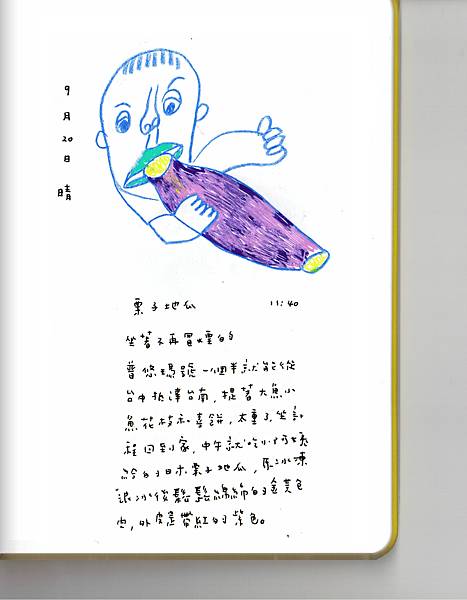 9月20日 晴
栗子地瓜 11:40
坐著不再冒煙的
普悠瑪號一個半就能從
台中抵達台南,提著大魚小
魚花枝和喜餅,太重了,坐計
程回到家,中午就吃小
給的日本栗子地瓜,冰凍
退冰後鬆鬆綿綿的金黃色
肉,外皮是帶紅的紫色。